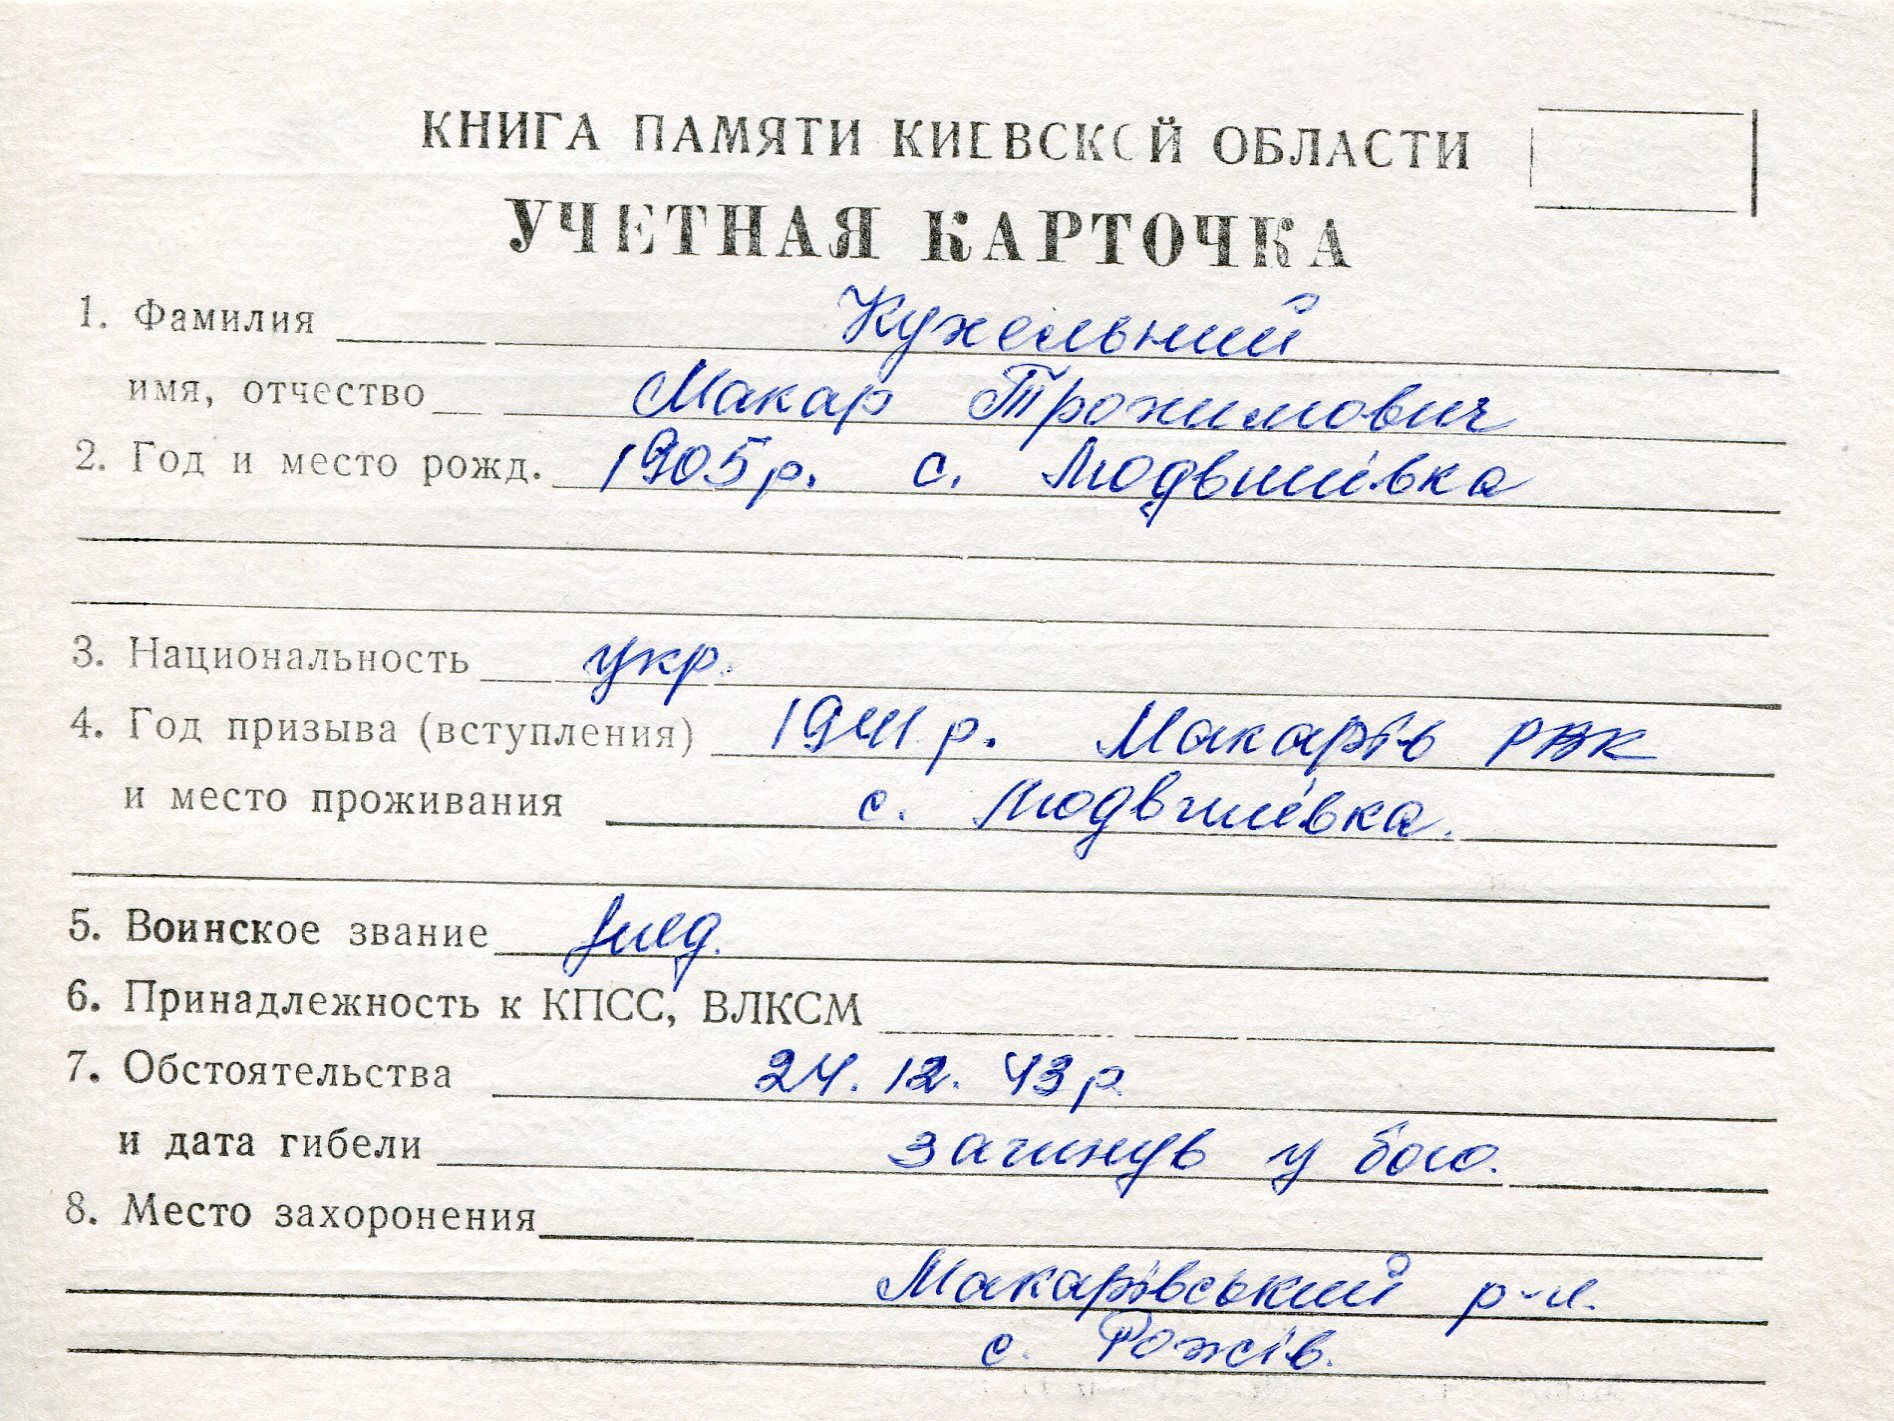 КНИГА ПАМЯТИ КИЕВСКОЙ ОБЛАСТИ
УЧЕТНАЯ КАРТОЧКА
1. Фамилия Кужельний
имя, отчество Макар Трохимович
2. Год и место рожд. 1905 р. с. Людвинівка
3. Национальность укр.
4. Год призыва (вступления) 1941 р. Макарів РВК
и место проживания с. Людвинівка.
5. Воинское звание
6. Принадлежность к КПСС, ВЛКСМ
7. Обстоятельства 24. 12. 43 р.
и дата гибели загинув у бою.
8. Место захоронения
Макарівський р-н.
с. Рожів.